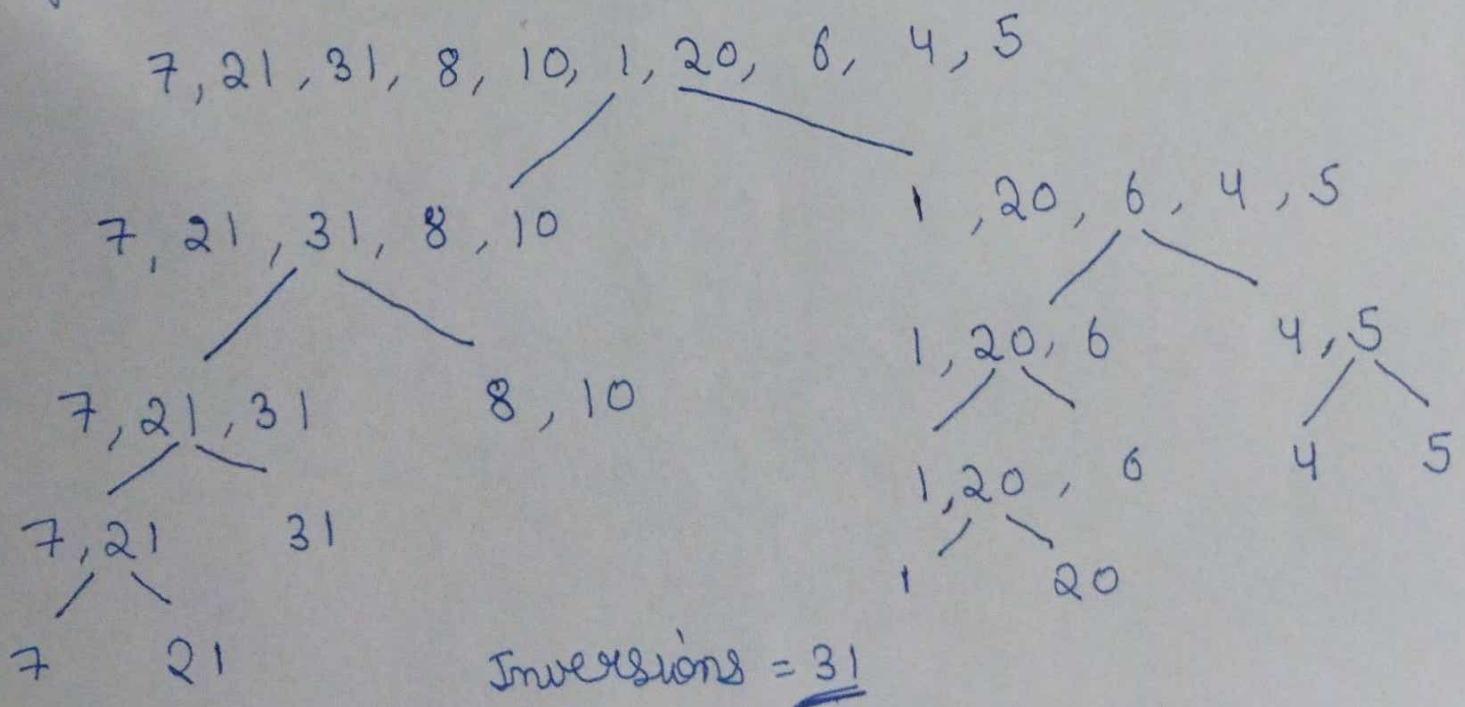 7, 21, 31, 8, 10, 1, 20, 6, 4, 5
7, 21, 31, 8, 10
1, 20, 6, 4, 5
7, 21, 31
8, 10
1, 20, 6
4, 5
7, 21
31
1, 20,
6
4
5
7
21
1
20
Inversions = 31